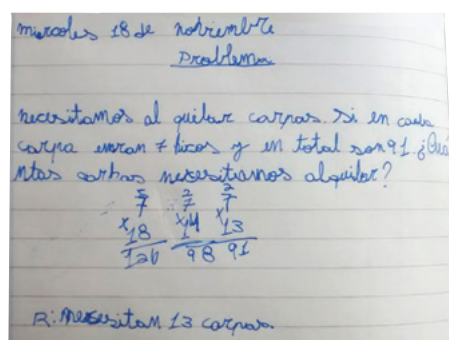 miercoles 18 de nobiembre
Problema
necesitamos al quilar carpas. si en cada
carpa entran 7 hicos y en total son 91. ¿Cuá
ntas carbas necesitiamos alquilar?
5 2 2
7 7 7
x18 x14 x13
126 98 91
R: necesitan 13 carpas.